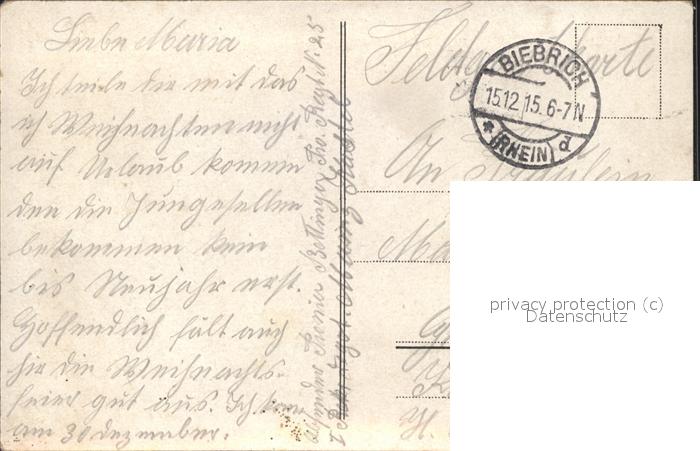 Liebe Maria
Ich teile dir mit das
ich Weihnachten nicht
auf Urlaub kommen
den die Jungesellen
bekommen kein
bis Neujahr erst.
Hoffendlich fält auch
hir die Weihnachts-
feier gut aus. Ich kom
am 30 dezember.
Absender
Mainz Kastel
Feldpostkarte
BIEBRICH
15.12.15. 6-7 N
* (RHEIN) d
An Fräulein
privacy protection (c)
Datenschutz